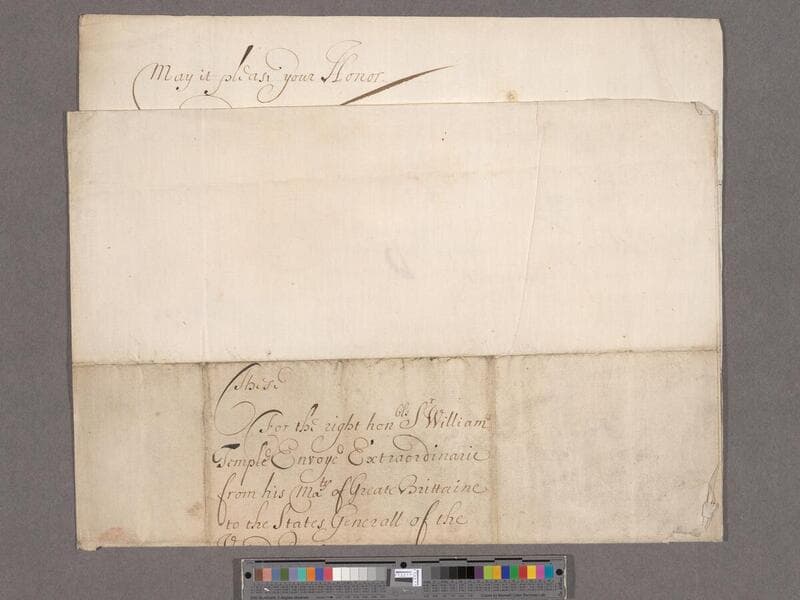 May it please your Honor
These
For the right hon.ble Sr William
Temple Envoye Extraordinarie
from his Ma.tie of Great Brittaine
to the States Generall of the